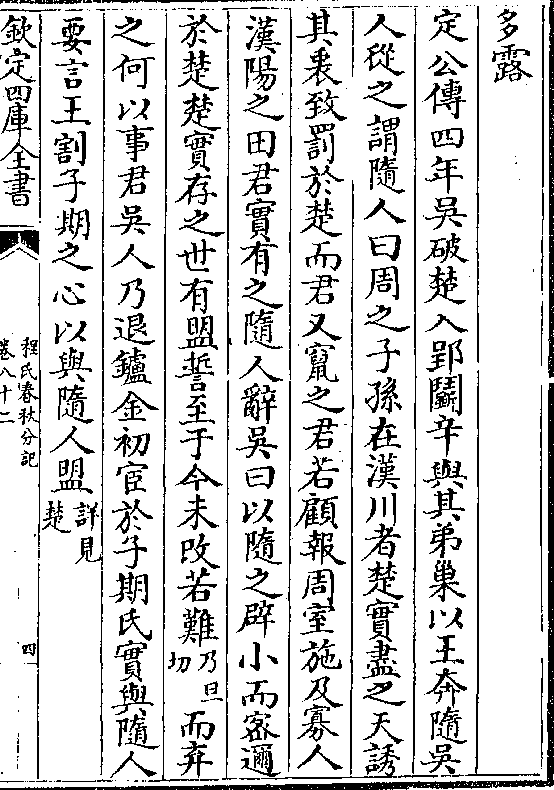 多露
定公傳四年吳破楚入郢鬬辛與其弟巢以王奔隨吳
人從之謂隨人曰周之子孫在漢川者楚實盡之天誘
其衷致罰於楚而君又竄之君若顧報周室施及寡人
漢陽之田君實有之隨人辭吳曰以隨之辟小而宻邇
於楚楚實存之世有盟誓至于今未改若難乃旦切而弃
之何以事君吳人乃退鑪金初宦於子期氏實與隨人
要言王割子期之心以與隨人盟詳見楚
欽定四庫全書
程氏春秋分記
卷八十二
四